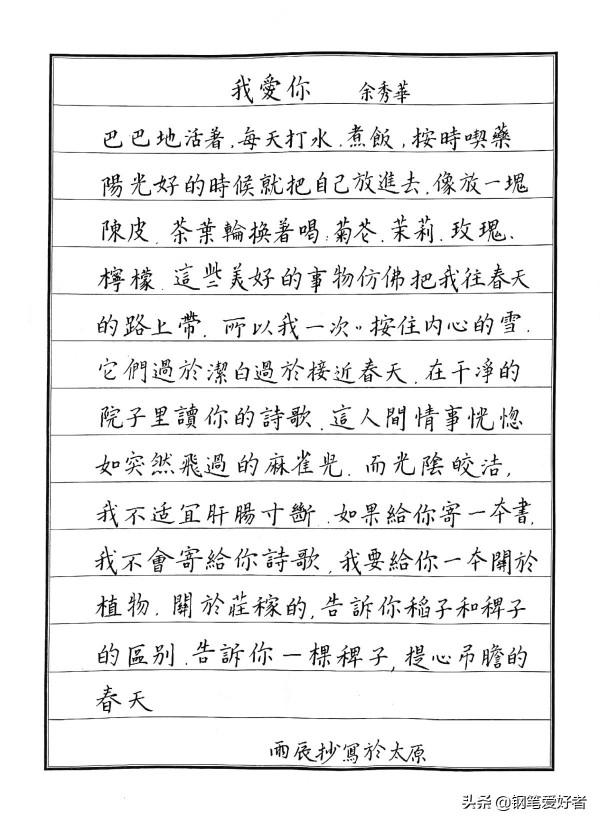 我愛你 余秀華
巴巴地活着.每天打水.煮飯,按時喫藥
陽光好的時候就把自己放進去.像放一塊
陳皮.茶葉輪換著喝:菊花.茉莉.玫瑰、
檸檬.這些美好的事物仿佛把我往春天
的路上帶.所以我一次〃按住内心的雪.
它們過於潔白過於接近春天.在干凈的
院子里讀你的詩歌.這人間情事恍惚
如突然飛過的麻雀兒.而光陰皎洁,
我不适宜肝腸寸斷.如果給你寄一本書,
我不會寄給你詩歌,我要給你一本關於
植物.關於莊稼的,告訴你稻子和稗子
的區别.告訴你一棵稗子,提心吊膽的
春天
雨辰抄寫於太原
头条 @钢笔爱好者